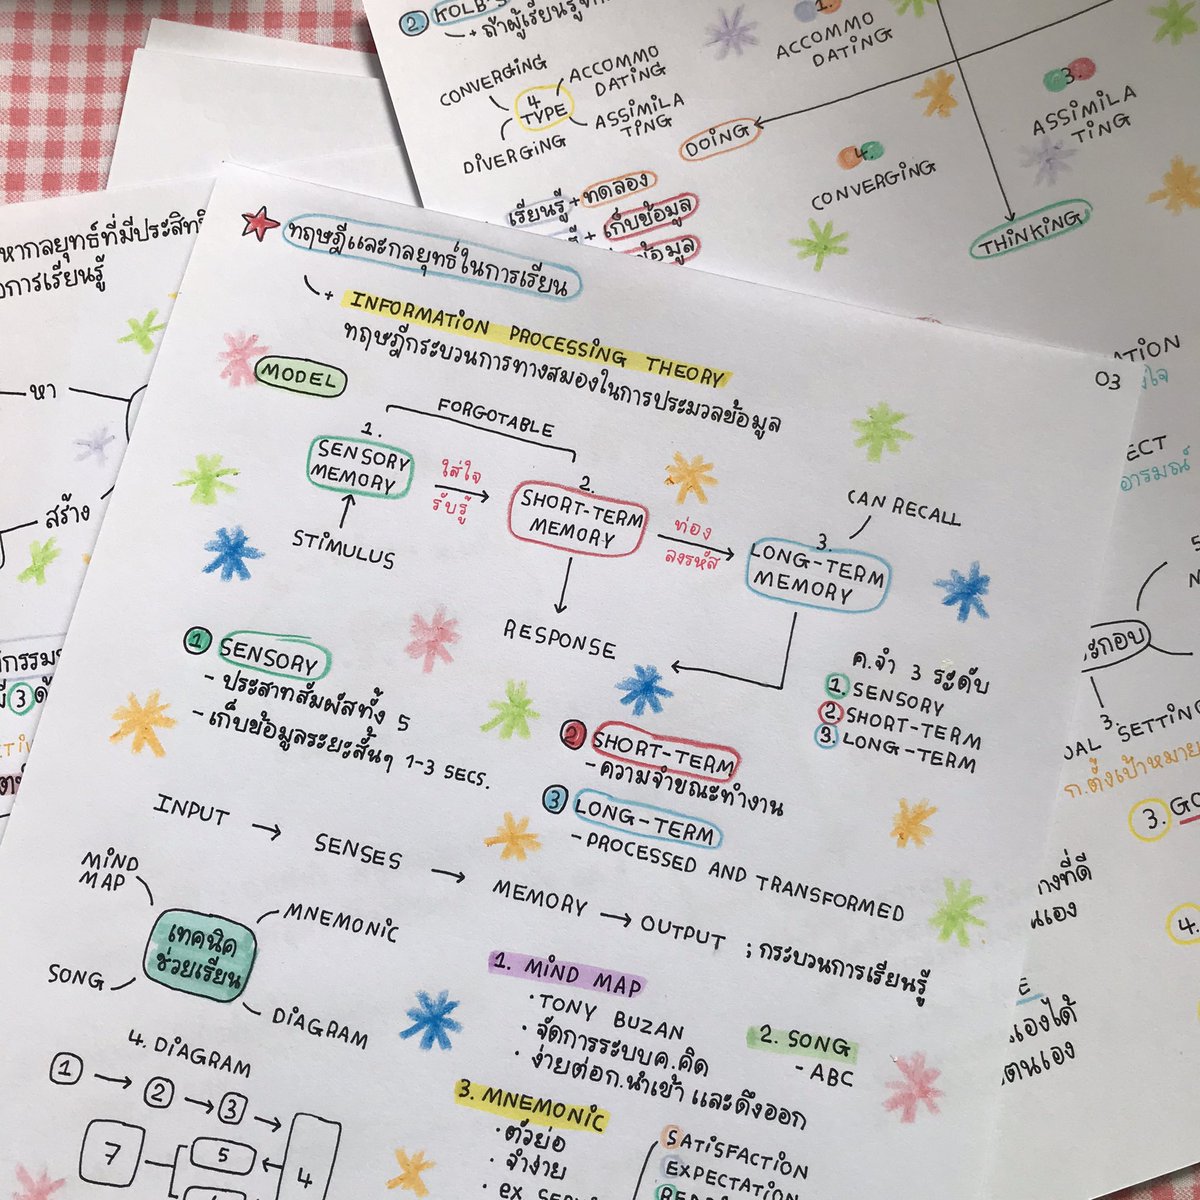 2. KOLB'S
→ ถ้าผู้เรียนรู้
CONVERGING
ACCOMMO
DATING
4
TYPE
ASSIMILA
TING
DIVERGING
1.
ACCOMMO
DATING
3.
ASSIMILA
TING
DOING
4.
CONVERGING
THINKING
เรียนรู้ + ทดลอง
+ เก็บข้อมูล
ข้อมูล
หากลยุทธ์ที่มีประสิทธิ
การเรียนรู้
หา
สร้าง
3
ทฤษฎีและกลยุทธ์ในการเรียน
→ INFORMATION PROCESSING THEORY
ทฤษฎีกระบวนการทางสมองในการประมวลข้อมูล
03
MODEL
FORGOTABLE
1.
SENSORY
MEMORY
ใส่ใจ
รับรู้
2.
SHORT-TERM
MEMORY
ท่อง
ลงรหัส
3.
LONG-TERM
MEMORY
CAN RECALL
STIMULUS
RESPONSE
ค.จำ 3 ระดับ
1. SENSORY
2. SHORT-TERM
3. LONG-TERM
1 SENSORY
- ประสาทสัมผัสทั้ง 5
- เก็บข้อมูลระยะสั้นๆ 1-3 SECS.
2 SHORT-TERM
- ความจำขณะทำงาน
3 LONG-TERM
- PROCESSED AND TRANSFORMED
INPUT → SENSES → MEMORY → OUTPUT ; กระบวนการเรียนรู้
MIND
MAP
MNEMONIC
เทคนิค
ช่วยเรียน
SONG
DIAGRAM
1. MIND MAP
· TONY BUZAN
· จัดการระบบค.คิด
· ง่ายต่อก.นำเข้า และดึงออก
2. SONG
- ABC
3. MNEMONIC
· ตัวย่อ
· จำง่าย
· ex
SATISFACTION
EXPECTATION
4. DIAGRAM
1 → 2 → 3 →
4
5
7
ECT
อารมณ์
3.
SETTING
ก.ตั้งเป้าหมาย
3. GO
4.